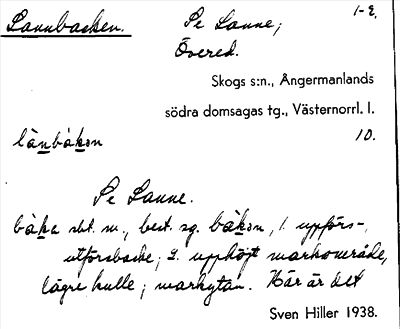 Lannbacken. Se Lanne; 1-2.
Övered.
Skogs s:n., Ångermanlands
södra domsagas tg., Västernorrl. l.
länbàkən 10.
Se Lanne.
bàka sbt. m., best. sg. bàkən, 1. uppförs-,
utförsbacke; 2. upphöjt markområde,
lägre kulle; markytan. Här är det
Sven Hiller 1938.